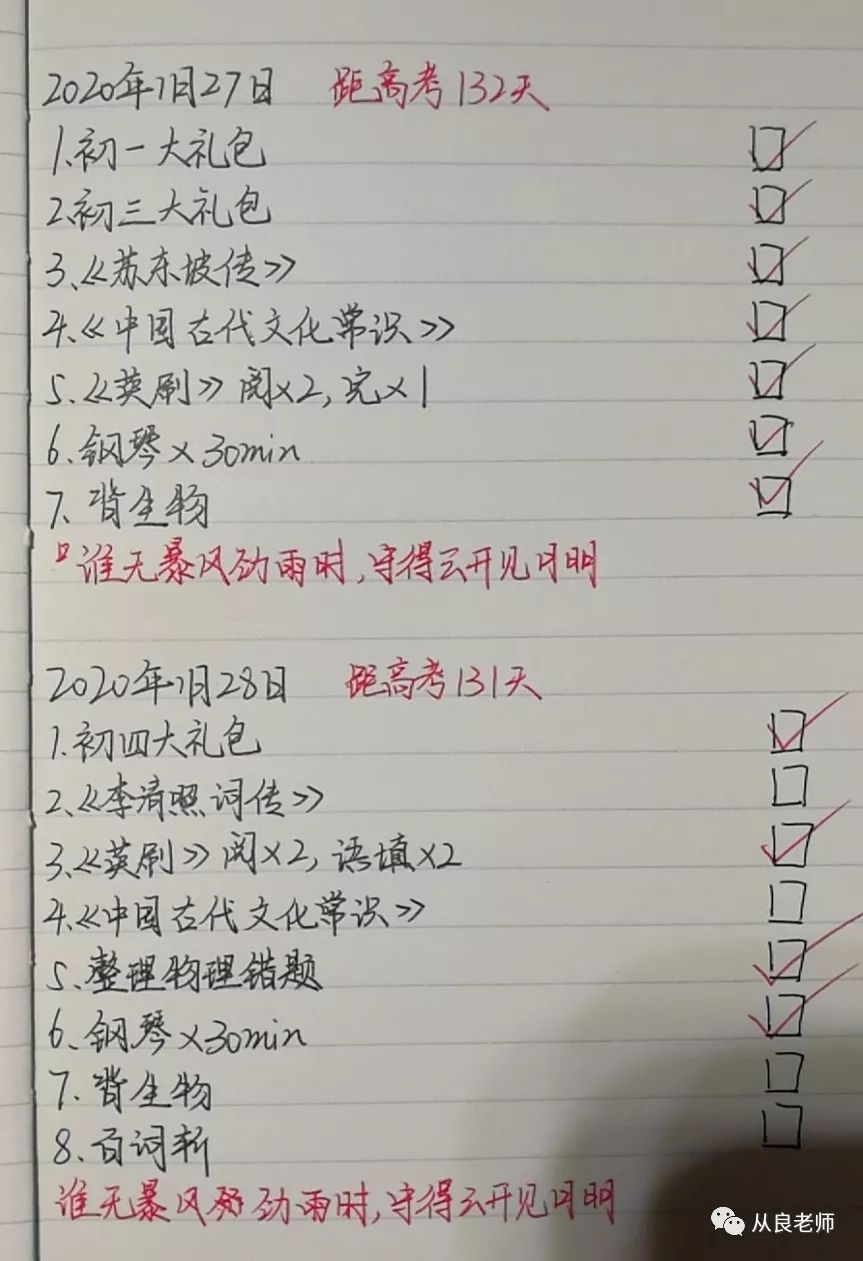 2020年1月27日 距高考132天
1.初一大礼包
2.初三大礼包
3.《苏东坡传》
4.《中国古代文化常识》
5.《英刷》阅×2,完×1
6.钢琴×30min
7.背生物
谁无暴风劲雨时,守得云开见月明
2020年1月28日 距高考131天
1.初四大礼包
2.《李清照词传》
3.《英刷》阅×2,语填×2
4.《中国古代文化常识》
5.整理物理错题
6.钢琴×30min
7.背生物
8.百词斩
谁无暴风劲雨时,守得云开见月明
从良老师